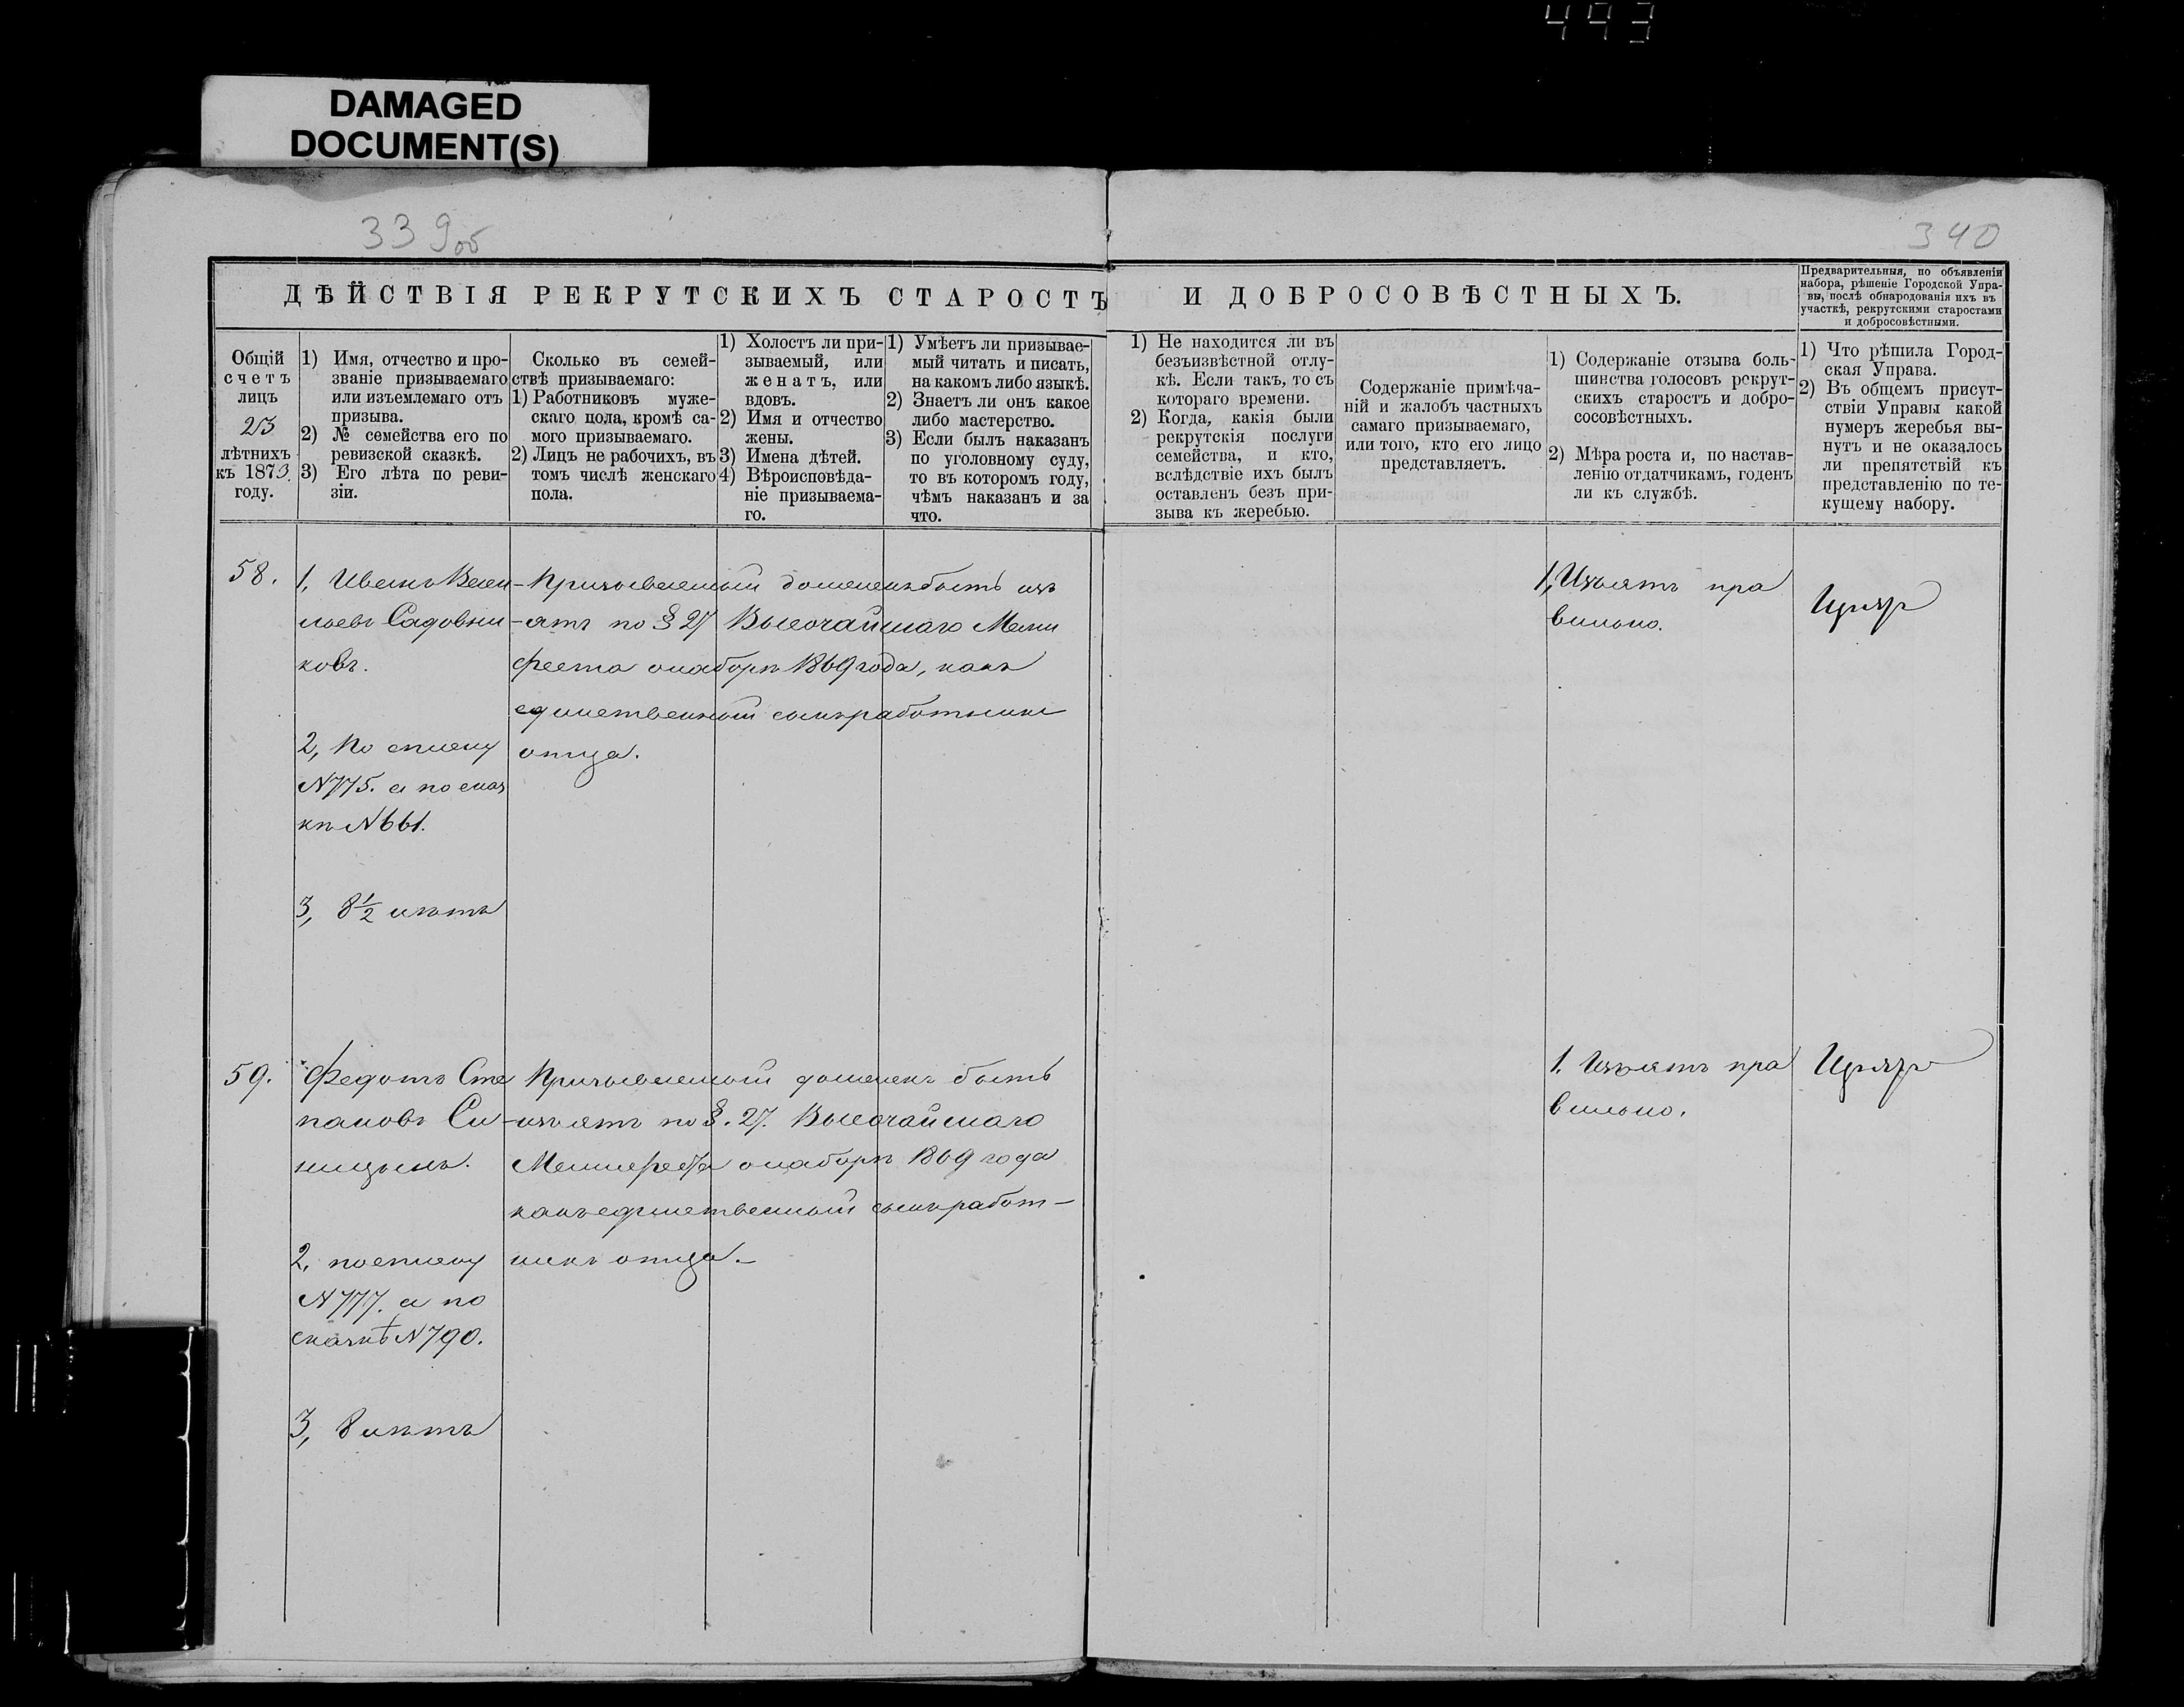 493
DAMAGED
DOCUMENT(S)
339об
340
ДѢЙСТВІЯ РЕКРУТСКИХЪ СТАРОСТЪ И ДОБРОСОВѢСТНЫХЪ.
Предварительныя, по объявленіи
набора, рѣшеніе Городской Упра-
вы, послѣ обнародованія ихъ въ
участкѣ, рекрутскими старостами
и добросовѣстными.
Общій
счетъ
лицъ
23
лѣтнихъ
къ 1873
году.
1) Имя, отчество и про-
званіе призываемаго
или изъемлемаго отъ
призыва.
2) № семейства его по
ревизской сказкѣ.
3) Его лѣта по реви-
зіи.
Сколько въ семей-
ствѣ призываемаго:
1) Работниковъ муже-
скаго пола, кромѣ са-
мого призываемаго.
2) Лицъ не рабочихъ, въ
томъ числѣ женскаго
пола.
1) Холостъ ли при-
зываемый, или
женатъ, или
вдовъ.
2) Имя и отчество
жены.
3) Имена дѣтей.
4) Вѣроисповѣда-
ніе призываема-
го.
1) Умѣетъ ли призывае-
мый читать и писать,
на какомъ либо языкѣ.
2) Знаетъ ли онъ какое
либо мастерство.
3) Если былъ наказанъ
по уголовному суду,
то въ которомъ году,
чѣмъ наказанъ и за
что.
1) Не находится ли въ
безъизвѣстной отлу-
кѣ. Если такъ, то съ
котораго времени.
2) Когда, какія были
рекрутскія послуги
семейства, и кто,
вслѣдствіе ихъ былъ
оставленъ безъ при-
зыва къ жеребью.
Содержаніе примѣча-
ній и жалобъ частныхъ
самаго призываемаго,
или того, кто его лицо
представляетъ.
1) Содержаніе отзыва боль-
шинства голосовъ рекрут-
скихъ старостъ и добро-
сосовѣстныхъ.
2) Мѣра роста и, по настав-
ленію отдатчикамъ, годенъ
ли къ службѣ.
1) Что рѣшила Город-
ская Управа.
2) Въ общемъ присут-
ствіи Управы какой
нумеръ жеребья вы-
нутъ и не оказалось
ли препятствій къ
представленію по те-
кущему набору.
58.
1, Иванъ Васи
льевъ Садовни
ковъ.
2, По списку
№775. а по сказ
кѣ №661.
3, 8½ лѣтъ
Призываемый долженъ быть изъ
-ятъ по § 27 Высочайшаго Мани
феста о наборѣ 1869 года, какъ
единственный сынъ работникъ
отца.
1, Изъятъ пра
вильно.
59.
Федотъ Сте
пановъ Си
ницынъ.
2, по списку
№777. а по
сказкѣ №790.
3, 8 лѣтъ
Призываемый долженъ быть
изъятъ по §. 27. Высочайшаго
Манифеста о наборѣ 1869 года
какъ единственный сынъ работ-
никъ отца.-
1. Изъятъ пра
вильно.